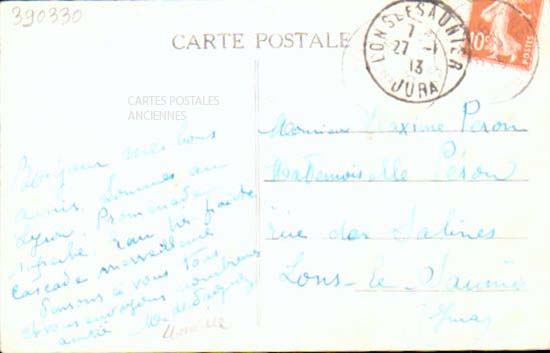 390330
CARTE POSTALE
LONS-LE-SAUNIER
7
27 -1
13
JURA
10c
POSTES
CARTES POSTALES
ANCIENNES
Bonjour mes bons
amis. Sommes au
Promenade
superbe
cascade merveilleuse
Pensons à vous tous
et vous envoyons nombreuses
amitiés
Monsieur Maxime Péron
Mademoiselle Péron
rue des Salines
Lons-le-Saunier
(Jura)